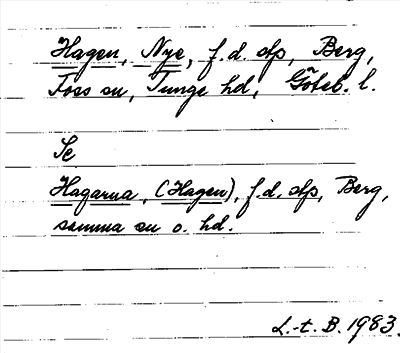 Hagen, Nye, f.d. dfp, Berg,
Foss sn, Tunge hd, Göteb. l.
Se
Hagarna, (Hagen), f.d. dfp, Berg,
samma sn o. hd.
L.-t. B. 1983.